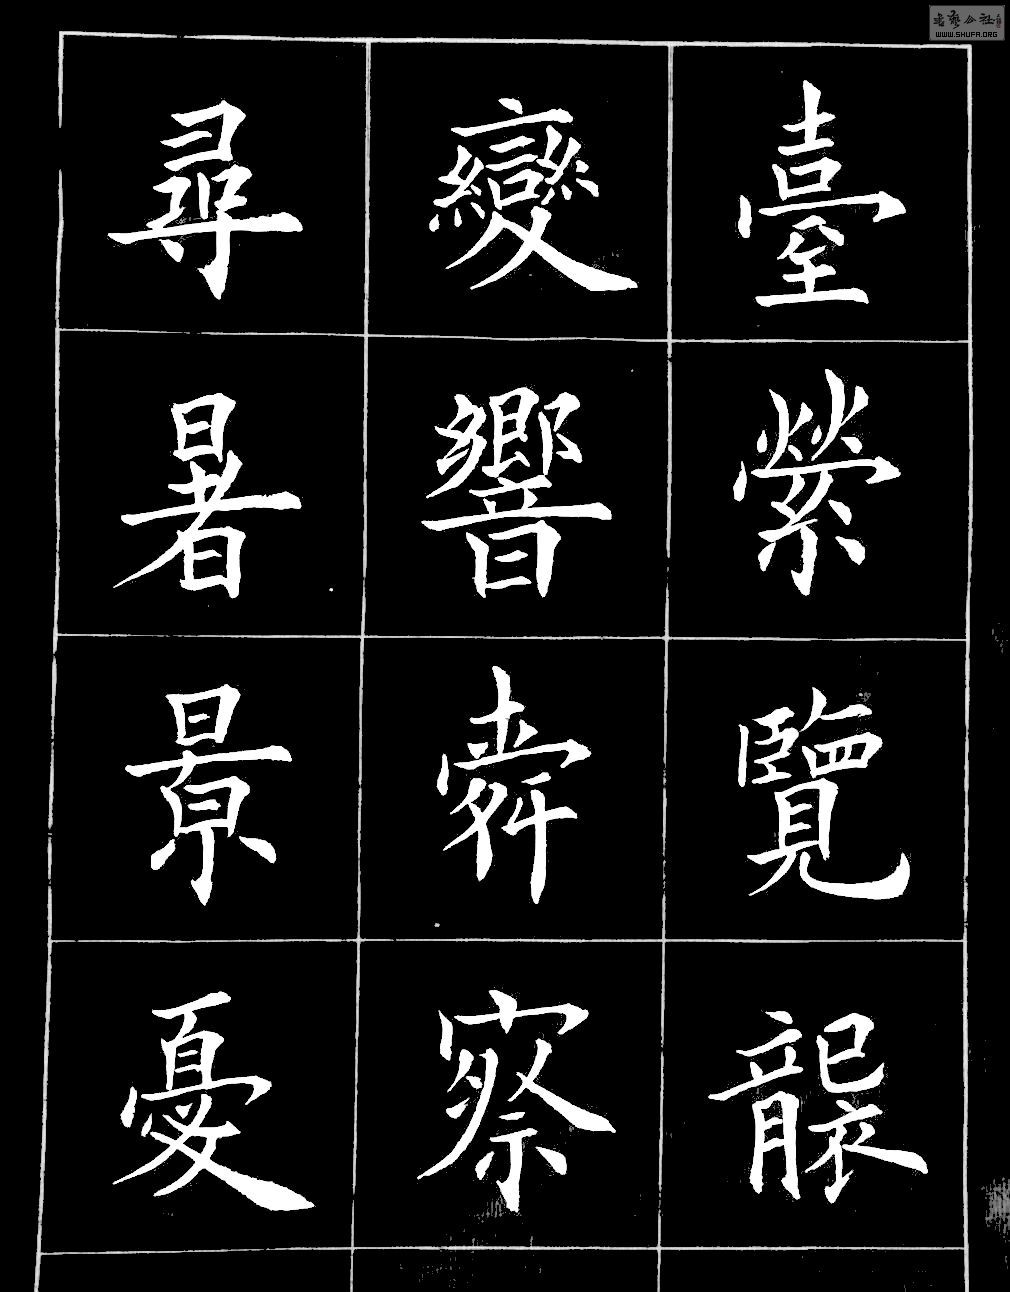 臺縈覽襲
變響舜察
尋暑景憂
書藝公社
WWW.SHUFA.ORG